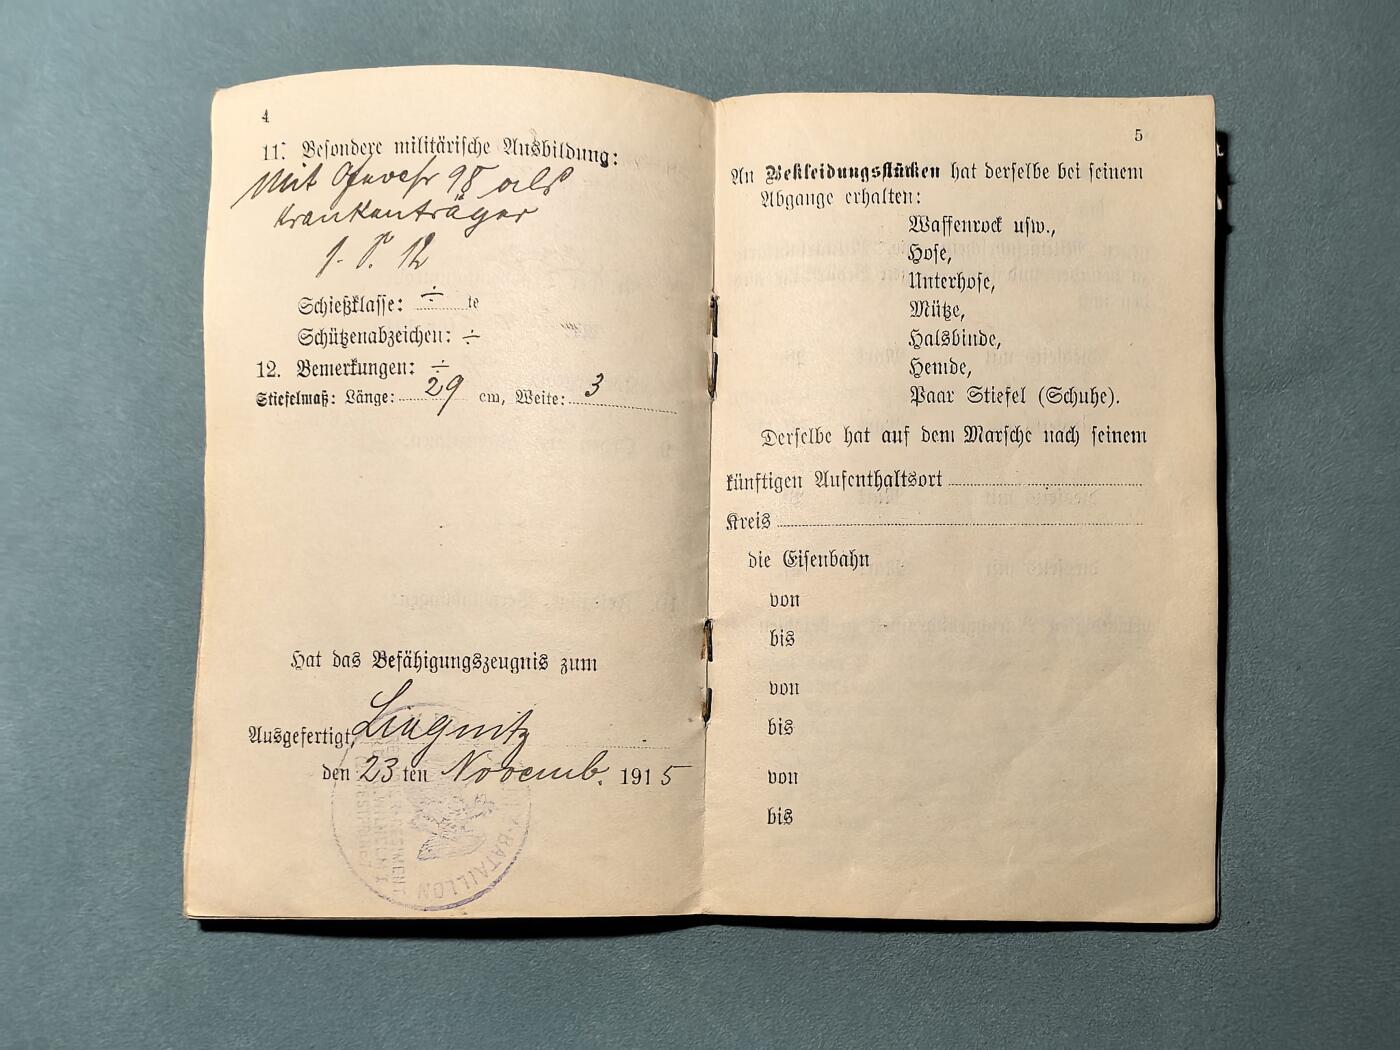 4
11. Besondere militärische Ausbildung:
Mit Gewehr 98 als
Krankenträger
Schießklasse: ÷ te
Schützenabzeichen: ÷
12. Bemerkungen: ÷
Stiefelmaß: Länge: 29 cm, Weite: 3
Hat das Befähigungszeugnis zum
Ausgefertigt, Liegnitz
den 23 ten Novemb. 1915
BATAILLON
5
An Bekleidungsstücken hat derselbe bei seinem
Abgange erhalten:
Waffenrock usw.,
Hose,
Unterhose,
Mütze,
Halsbinde,
Hemde,
Paar Stiefel (Schuhe).
Derselbe hat auf dem Marsche nach seinem
künftigen Aufenthaltsort
Kreis
die Eisenbahn
von
bis
von
bis
von
bis